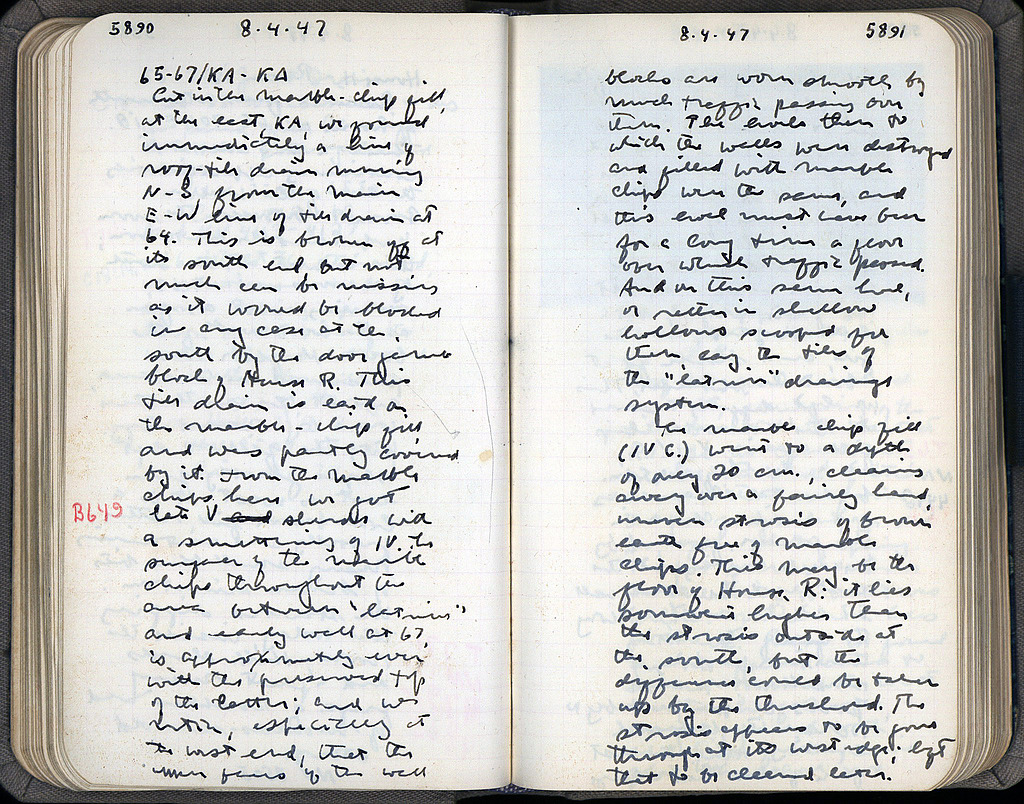 5890 8.4.47
65-67/KA-KA
Cut in the marble-chip fill,
at the east, KA, we found
immediately a line of
roof-tile drain running
N-S from the main
E-W line of tile drain at
64. This is broken off at
its south end, but not
much can be missing
as it would be blocked
in any case at the
south by the door jamb
block of House R. This
tile drain is laid on
the marble-chip fill
and was partly covered
by it. From the marble
chips here we got
B649
late V sherds with
a smattering of IV. The
surface of the marble
chips throughout the
area between "latrine"
and early wall at 67,
is approximately even
with the preserved top
of the latter; and we
notice, especially at
the west end, that the
inner faces of the wall
8.4.47 5891
blocks are worn smooth by
much traffic passing over
them. The levels then to
which the walls were destroyed
and filled with marble
chips were the same, and
this level must have been
for a long time a floor
over which traffic passed.
And on this same level,
or rather in shallow
hollows scooped for
them lay the tiles of
the "latrine" drainage
system.
The marble chip fill
(IV C.) went to a depth
of only 20 cm., cleaning
away over a fairly hard,
uneven strosis of brown
earth free of marble
chips. This may be the
floor of House R: it lies
somewhat higher than
the strosis outside at
the south, but the
difference could be taken
up by the threshold. The
strosis appears to be gone
through at its west edge; left
that to be cleaned later.